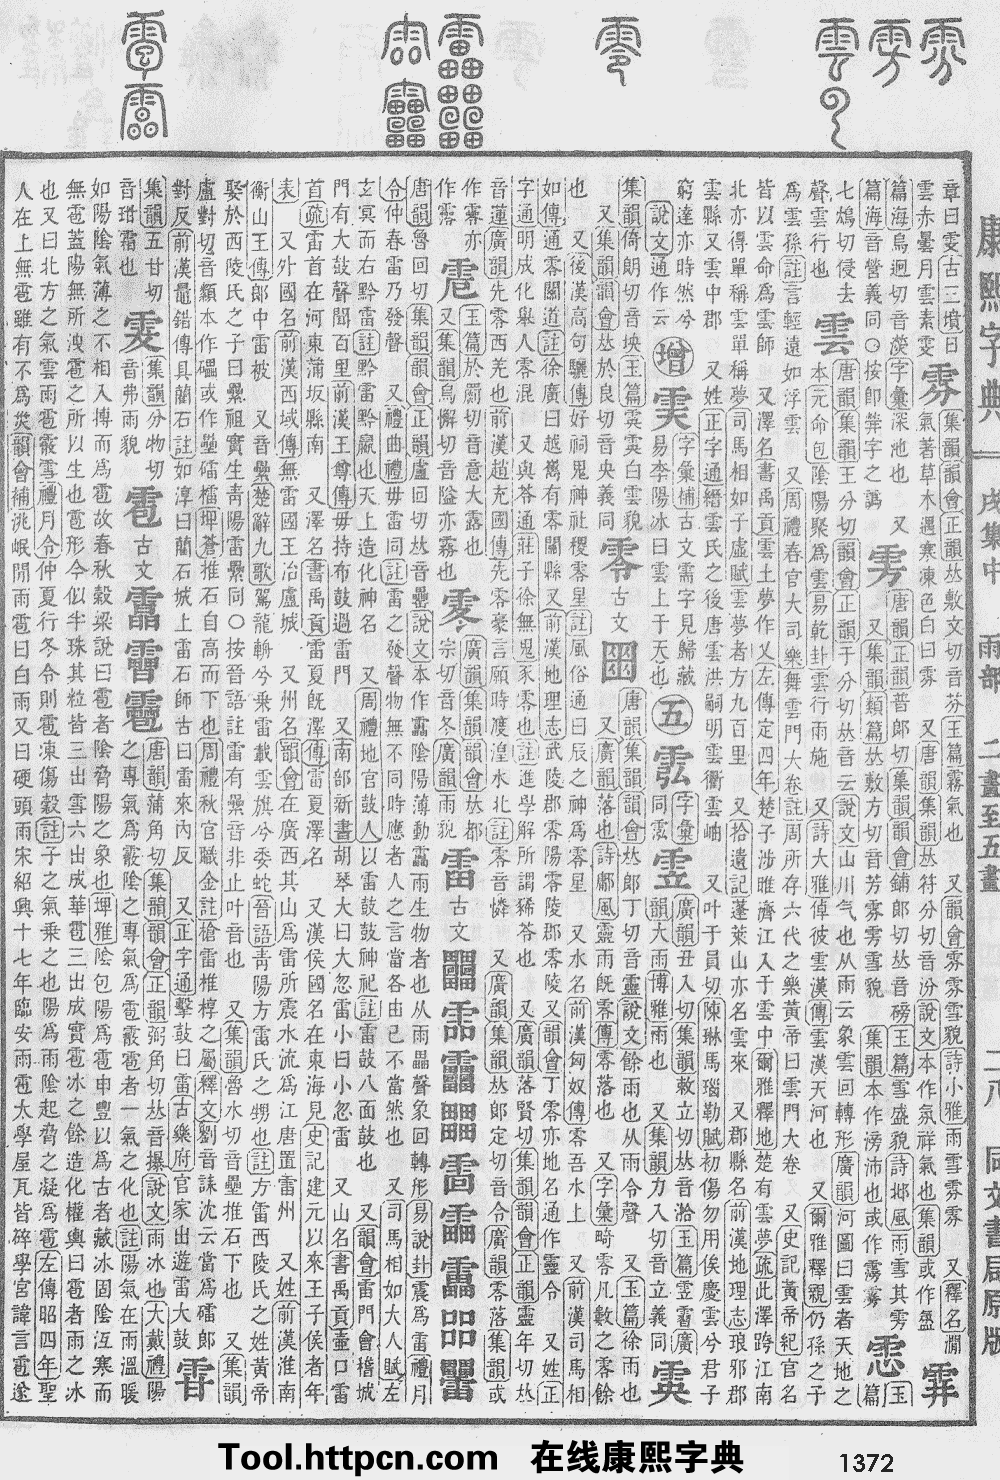 康熙字典 戌集中 雨部 二畫至五畫 二八 同文書局原版
章曰雯古三墳曰
雲赤曇月雲素雯
雰
集韻韻會正韻𠀤敷文切音芬玉篇霧氣也 又韻會雰雰雪貌詩小雅雨雪雰雰 又釋名潤
氣著草木遇寒凍色白曰雰 又唐韻集韻𠀤符分切音汾說文本作氛祥氣也集韻或作
篇海烏迥切音濙字彙深池也 又
篇海音營義同○按卽
雱
唐韻正韻普郎切集韻韻會鋪郎切𠀤音磅玉篇雪盛貌詩邶風雨雪其雱
又集韻類篇𠀤敷方切音芳雾雱雪貌 集韻本作滂沛也或作霶
玉篇
七煬切侵去
聲雲行也
雲
唐韻集韻王分切韻會正韻于分切𠀤音云說文山川气也从雨云象雲回轉形廣韻河圖曰雲者天地之
本元命包陰陽聚爲雲易乾卦雲行雨施 又詩大雅倬彼雲漢傳雲漢天河也 又爾雅釋親仍孫之子
爲雲孫註言輕遠如浮雲 又周禮春官大司樂舞雲門大卷註周所存六代之樂黃帝曰雲門大卷 又史記黃帝紀官名
皆以雲命爲雲師 又澤名書禹貢雲土夢作乂左傳定四年楚子涉睢濟江入于雲中爾雅釋地楚有雲夢疏此澤跨江南
北亦得單稱雲單稱夢司馬相如子虛賦雲夢者方九百里 又拾遺記蓬萊山亦名雲來 又郡縣名前漢地理志琅邪郡
雲縣又雲中郡 又姓正字通縉雲氏之後唐雲洪嗣明雲衢雲岫 又叶于員切陳琳馬瑙勒賦初傷勿用俟慶雲兮君子
窮達亦時然兮
說文通作云
增
字彙補古文需字見歸藏
易李陽冰曰雲上于天也
五
字彙
同䨎
廣韻丑入切集韻敕立切𠀤音湁玉篇霅霫廣
韻大雨博雅雨也 又集韻力入切音立義同
集韻倚朗切音坱玉篇䨐䨐白雲貌
又集韻韻會𠀤於良切音央義同
零
古文
唐韻集韻韻會𠀤郎丁切音靈說文餘雨也从雨令聲 又玉篇徐雨也
又廣韻落也詩鄘風靈雨旣零傳零落也 又字彙畸零凡數之零餘
也 又後漢高句驪傳好祠鬼神社稷零星註風俗通曰辰之神爲零星 又水名前漢匈奴傳零吾水上 又前漢司馬相
如傳通零關道註徐廣曰越巂有零關縣又前漢地理志武陵郡零陽零陵郡零陵又韻會丁零亦地名通作靈令 又姓正
字通明成化舉人零混 又與苓通莊子徐無鬼豕零也註進學解所謂豨苓也 又廣韻集韻韻會正韻靈年切𠀤
音蓮廣韻先零西羌也前漢趙充國傳先零豪言願時渡湟水北註零音憐 又廣韻集韻𠀤郎定切音令廣韻零落集韻或
作霝亦
作零
玉篇於罽切音意大露也
又集韻烏懈切音隘亦霧也
廣韻集韻韻會𠀤都
宗切音冬廣韻雨貌
雷
古文
唐韻魯回切集韻韻會正韻盧回切𠀤音罍說文本作靁陰陽薄動靁雨生物者也从雨畾聲象回轉形易說卦震爲雷禮月
令仲春雷乃發聲 又禮曲禮毋雷同註雷之發聲物無不同時應者人之言當各由已不當然也 又司馬相如大人賦左
玄冥而右黔雷註黔雷黔嬴也天上造化神名 又周禮地官鼓人以雷鼓鼓神祀註雷鼓八面鼓也 又韻會雷門會稽城
門有大鼓聲聞百里前漢王尊傳毋持布鼓過雷門 又南部新書胡琴大曰大忽雷小曰小忽雷 又山名書禹貢壷口雷
首疏雷首在河東蒲坂縣南 又澤名書禹貢雷夏旣澤傳雷夏澤名 又漢侯國名在東海見史記建元以來王子侯者年
表 又外國名前漢西域傳無雷國王治盧城 又州名韻會在廣西其山爲雷所震水流爲江唐置雷州 又姓前漢淮南
衡山王傳郞中雷被 又音纍楚辭九歌駕龍輈兮乘雷載雲旗兮委蛇晉語靑陽方雷氏之甥也註方雷西陵氏之姓黃帝
娶於西陵氏之子曰纍祖實生靑陽雷纍同○按晉語註雷有纍音非止叶音也 又集韻魯水切音壘推石下也 又集韻
盧對切音纇本作礧或作壘礌櫑埤蒼推石自高而下也周禮秋官職金註槍雷椎椁之屬釋文劉音誄沈云當爲礌郞
對反前漢鼂錯傳具藺石註如淳曰藺石城上雷石師古曰雷來內反 又正字通擊鼓曰雷古樂府官家出遊雷大鼓
集韻五甘切
音玵霜也
集韻分物切
音弗雨貌
雹
古文
唐韻蒲角切集韻韻會正韻弼角切𠀤音㩧說文雨冰也大戴禮陽
之專氣爲霰陰之專氣爲雹霰雹者一氣之化也註陽氣在雨溫暖
如陽陰氣薄之不相入摶而爲雹故春秋穀梁說曰雹者陰脅陽之象也埤雅陰包陽爲雹申豐以爲古者藏冰固陰沍寒而
無雹蓋陽無所洩雹之所以生也雹形今似半珠其粒皆三出雪六出成華雹三出成實雹冰之餘造化權輿曰雹者雨之冰
也又曰北方之氣雲雨雹霰雪禮月令仲夏行冬令則雹凍傷穀註子之氣乘之也陽爲雨陰起脅之凝爲雹左傳昭四年聖
人在上無雹雖有不爲災韻會補洮岷閒雨雹曰白雨又曰硬頭雨宋紹興十七年臨安雨雹太學屋瓦皆碎學宮諱言雹遂
Tool.httpcn.com 在线康熙字典 1372